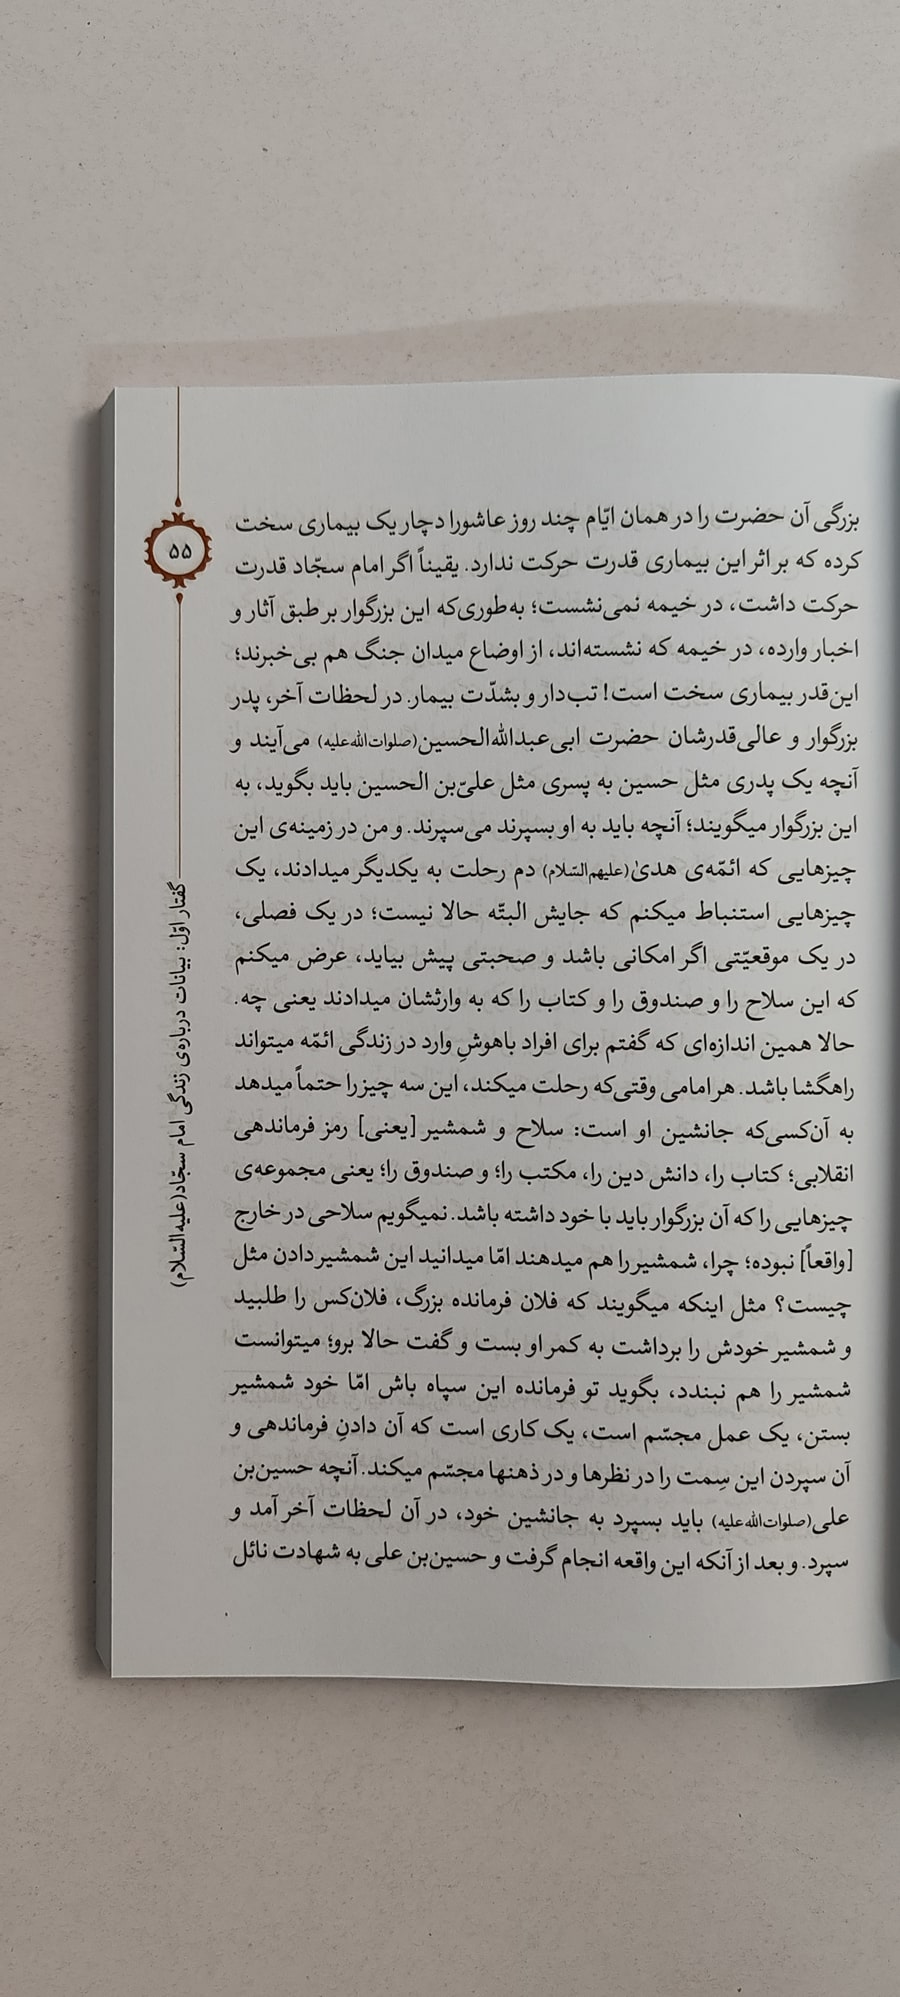 بزرگی آن حضرت را در همان ایّام چند روز عاشورا دچار یک بیماری سخت
کرده که بر اثر این بیماری قدرت حرکت ندارد. یقیناً اگر امام سجّاد قدرت
حرکت داشت، در خیمه نمی‌نشست؛ به‌طوری‌که این بزرگوار بر طبق آثار و
اخبار وارده، در خیمه که نشسته‌اند، از اوضاع میدان جنگ هم بی‌خبرند؛
این‌قدر بیماری سخت است! تب‌دار و بشدّت بیمار. در لحظات آخر، پدر
بزرگوار و عالی‌قدرشان حضرت ابی‌عبدالله‌الحسین(صلوات‌الله‌علیه) می‌آیند و
آنچه یک پدری مثل حسین به پسری مثل علیّ‌بن الحسین باید بگوید، به
این بزرگوار میگویند؛ آنچه باید به او بسپرند می‌سپرند. و من در زمینه‌ی این
چیزهایی که ائمّه‌ی هدیٰ(علیهم‌السّلام) دم رحلت به یکدیگر میدادند، یک
چیزهایی استنباط میکنم که جایش البتّه حالا نیست؛ در یک فصلی،
در یک موقعیّتی اگر امکانی باشد و صحبتی پیش بیاید، عرض میکنم
که این سلاح را و صندوق را و کتاب را که به وارثشان میدادند یعنی چه.
حالا همین اندازه‌ای که گفتم برای افراد باهوشِ وارد در زندگی ائمّه میتواند
راهگشا باشد. هر امامی وقتی‌که رحلت میکند، این سه چیز را حتماً میدهد
به آن‌کسی‌که جانشین او است: سلاح و شمشیر [یعنی] رمز فرماندهی
انقلابی؛ کتاب را، دانش دین را، مکتب را؛ و صندوق را؛ یعنی مجموعه‌ی
چیزهایی را که آن بزرگوار باید با خود داشته باشد. نمیگویم سلاحی در خارج
[واقعاً] نبوده؛ چرا، شمشیر را هم میدهند امّا میدانید این شمشیر دادن مثل
چیست؟ مثل اینکه میگویند که فلان فرمانده بزرگ، فلان‌کس را طلبید
و شمشیر خودش را برداشت به کمر او بست و گفت حالا برو؛ میتوانست
شمشیر را هم نبندد، بگوید تو فرمانده این سپاه باش امّا خود شمشیر
بستن، یک عمل مجسّم است، یک کاری است که آن دادنِ فرماندهی و
آن سپردن این سِمت را در نظرها و در ذهنها مجسّم میکند. آنچه حسین‌بن
علی(صلوات‌الله‌علیه) باید بسپرد به جانشین خود، در آن لحظات آخر آمد و
سپرد. و بعد از آنکه این واقعه انجام گرفت و حسین‌بن علی به شهادت نائل
۵۵
گفتار اوّل: بیانات درباره‌ی زندگی امام سجّاد(علیه‌السّلام)